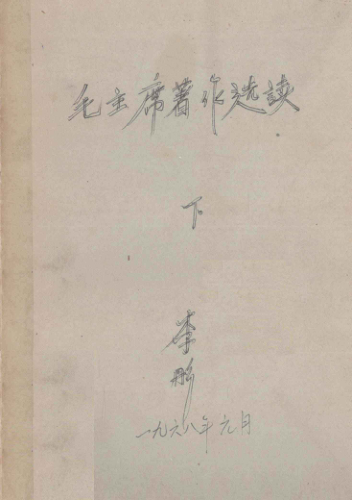 毛主席著作选读
下
李彤
一九六八年元月